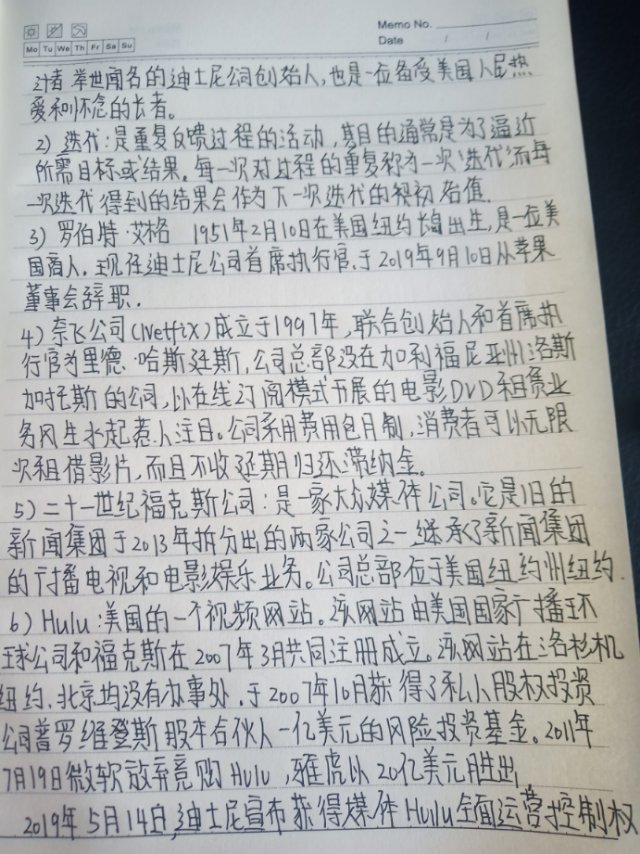 Memo No.
Mo Tu We Th Fr Sa Su
Date / /
计者 举世闻名的迪士尼公司创始人,也是一位备受美国人民热
爱和怀念的长者。
2) 迭代:是重复反馈过程的活动,其目的通常是为了逼近
所需目标或结果。每一次对过程的重复称为一次“迭代”,而每
一次迭代得到的结果会作为下一次迭代的初始值.
3) 罗伯特·艾格 1951年2月10日在美国纽约长岛出生,是一位美
国商人.现任迪士尼公司首席执行官.于2019年9月10日从苹果
董事会辞职.
4) 奈飞公司(Netflix)成立于1997年,联合创始人和首席执
行官为里德·哈斯廷斯,公司总部设在加利福尼亚州洛斯
加托斯的公司,以在线订阅模式开展的电影DVD租赁业
务风生水起惹人注目。公司采用费用包月制,消费者可以无限
次租借影片,而且不收延期归还滞纳金。
5) 二十一世纪福克斯公司:是一家大众媒体公司。它是旧的
新闻集团于2013年拆分出的两家公司之一继承了新闻集团
的广播电视和电影娱乐业务。公司总部位于美国纽约州纽约.
6) Hulu:美国的一个视频网站。该网站由美国国家广播环
球公司和福克斯在2007年3月共同注册成立。该网站在洛杉机
纽约、北京均设有办事处.于2007年10月获得了私人股权投资
公司普罗维登斯股本合伙人一亿美元的风险投资基金。2011年
7月19日微软放弃竞购Hulu,雅虎以20亿美元胜出
2019年5月14日,迪士尼宣布获得媒体Hulu全面运营控制权